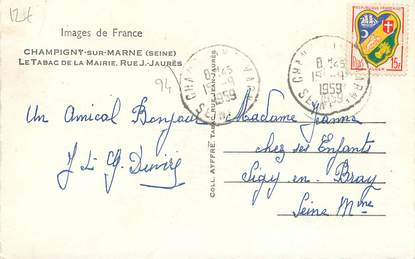 124
Images de France
CHAMPIGNY-SUR-MARNE (SEINE)
LE TABAC DE LA MAIRIE, RUE J.-JAURÈS
94
COLL. AYFFRE, TABAC, RUE JEAN-JAURÈS
REPUBLIQUE FRANÇAISE
15F
8 H 45
15 -9
1959
8 H 45
15 -9
1959
Un Amical Bonjour
Madame Jeanne
chez ses Enfants
Sigy-en-Bray
Seine Mme